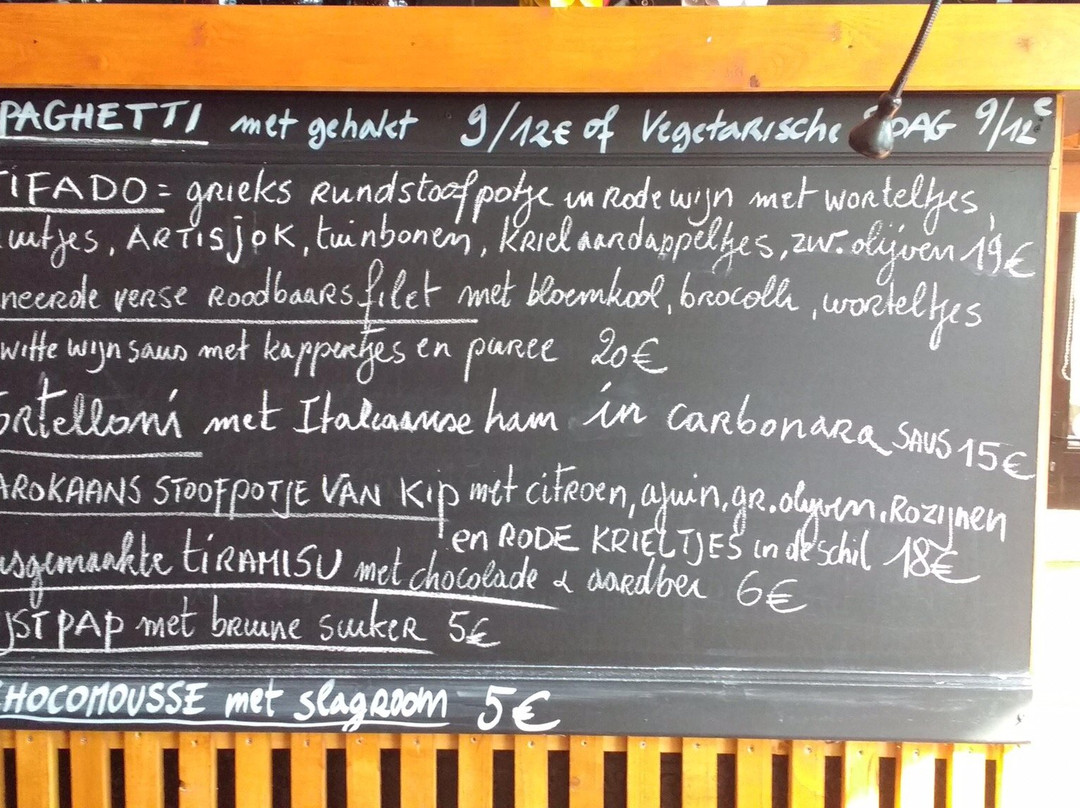 PAGHETTI met gehakt 9/12€ of Vegetarische SPAG 9/12€
TIFADO = grieks Rundstoofpotje in Rode wijn met worteltjes,
uitjes, ARTISjOK, tuinbonen, krielaardappeltjes, zw. olijven 19€
neerde verse Roodbaarsfilet met bloemkool, brocolli, worteltjes
witte wijnsaus met kappertjes en puree 20€
ortelloni met Italiaanse ham in carbonara SAUS 15€
AROKAANS STOOFPOTJE VAN Kip met citroen, ajuin, gr. olijven, Rozijnen
en RODE KRIELTJES in de schil 18€
isgemaakte TIRAMISU met chocolade & aardbei 6€
JSTPAP met bruine suiker 5€
CHOCOMOUSSE met slagroom 5€